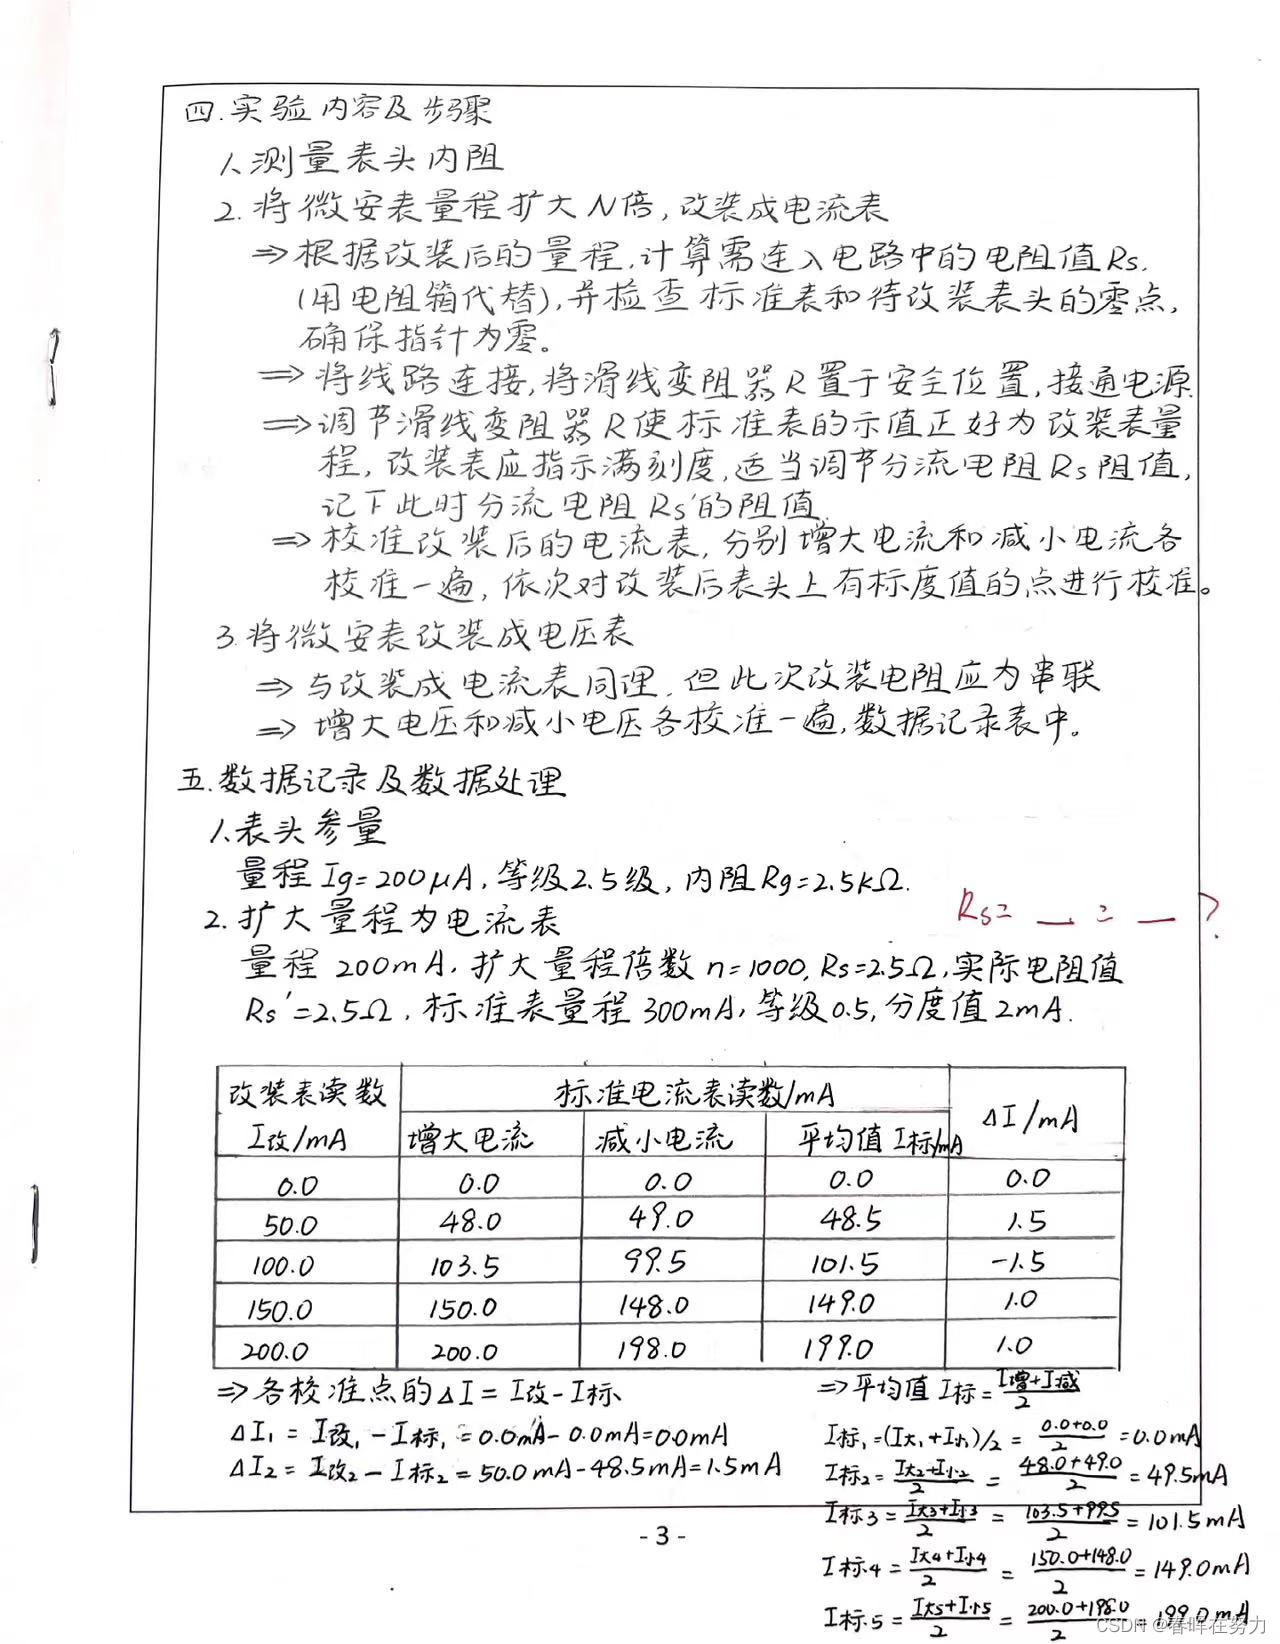 四.实验内容及步骤
1.测量表头内阻
2.将微安表量程扩大N倍,改装成电流表
⇒根据改装后的量程,计算需连入电路中的电阻值Rs.
(用电阻箱代替),并检查标准表和待改装表头的零点,
确保指针为零。
⇒将线路连接,将滑线变阻器R置于安全位置,接通电源.
⇒调节滑线变阻器R使标准表的示值正好为改装表量
程,改装表应指示满刻度,适当调节分流电阻Rs阻值,
记下此时分流电阻Rs'的阻值.
⇒校准改装后的电流表,分别增大电流和减小电流各
校准一遍,依次对改装后表头上有标度值的点进行校准。
3.将微安表改装成电压表
⇒与改装成电流表同理,但此次改装电阻应为串联
⇒增大电压和减小电压各校准一遍,数据记录表中。
五.数据记录及数据处理
1.表头参量
量程Ig=200μA,等级2.5级,内阻Rg=2.5kΩ.
Rs= __ = __ ?
2.扩大量程为电流表
量程200mA,扩大量程倍数n=1000,Rs=2.5Ω,实际电阻值
Rs'=2.5Ω,标准表量程300mA,等级0.5,分度值2mA.
改装表读数 标准电流表读数/mA ΔI/mA
I改/mA 增大电流 减小电流 平均值I标/mA
0.0 0.0 0.0 0.0 0.0
50.0 48.0 49.0 48.5 1.5
100.0 103.5 99.5 101.5 -1.5
150.0 150.0 148.0 149.0 1.0
200.0 200.0 198.0 199.0 1.0
⇒各校准点的ΔI=I改-I标
ΔI₁=I改₁-I标₁=0.0mA-0.0mA=0.0mA
ΔI2=I改2-I标2=50.0mA-48.5mA=1.5mA
⇒平均值I标=(I增+I减)/2
I标₁=(I大₁+I小₁)/2=(0.0+0.0)/2=0.0mA
I标2=(I大2+I小2)/2=(48.0+49.0)/2=49.5mA
I标3=(I大3+I小3)/2=(103.5+99.5)/2=101.5mA
I标4=(I大4+I小4)/2=(150.0+148.0)/2=149.0mA
I标5=(I大5+I小5)/2=(200.0+198.0)/2=199.0mA
-3-
CSDN @春晖在努力